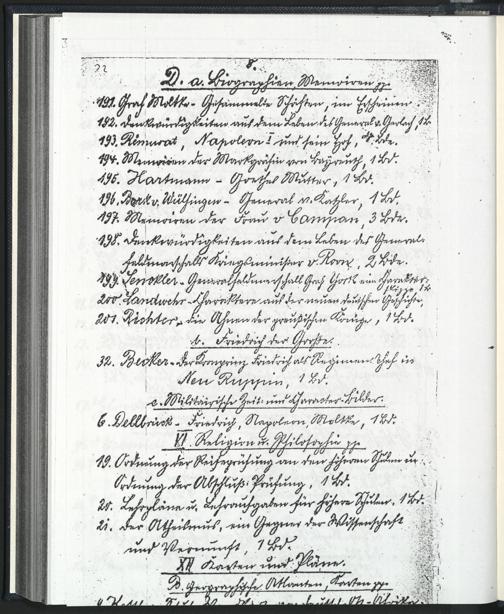 22
8.
D. a. Biographien, Memoiren pp.
191. Graf Moltke - Gesammelte Schriften, im Erscheinen.
192. Denkwürdigkeiten aus dem Leben des Generals v. Gerlach, 1 B.
193. Rémusat, Napoleon I und sein Hof, Bde.
194. Memoiren der Markgräfin von Bayreuth, 1 Bd.
195. Hartmann - Goethes Mutter, 1 Bd.
196. v. Wülfingen - General v. Katzler, 1 Bd.
197. Memoiren der Frau v Campan, 3 Bde.
198. Denkwürdigkeiten aus dem Leben des General-
feldmarschalls Kriegsministers v. Roon, 2 Bde.
199. - Generalfeldmarschall Graf ein
200. - Charaktere aus der neuen deutschen Geschichte,
201. Richter, die Ahnen der preußischen Könige, 1 Bd.
b. Friedrich der Große.
32. Becker - Der Kronprinz Friedrich als Regimentschef in
Neu Ruppin, 1 Bd.
c. Militairische Zeit- und Character-Bilder.
6. Dellbrück - Friedrich, Napoleon, Moltke, 1 Bd.
VI. Religion u. Philosophie pp
19. Ordnung der Reifeprüfung an den höheren Schulen u.
Ordnung der Abschluß-Prüfung, 1 Bd.
20. Lehrpläne u. Lehraufgaben für höhere Schulen. 1 Bd.
21. Der Atheismus, ein Gegner der Wissenschaft
und Vernunft, 1 Bd.
Karten und Pläne.
Geographische Atlanten, Karten pp.